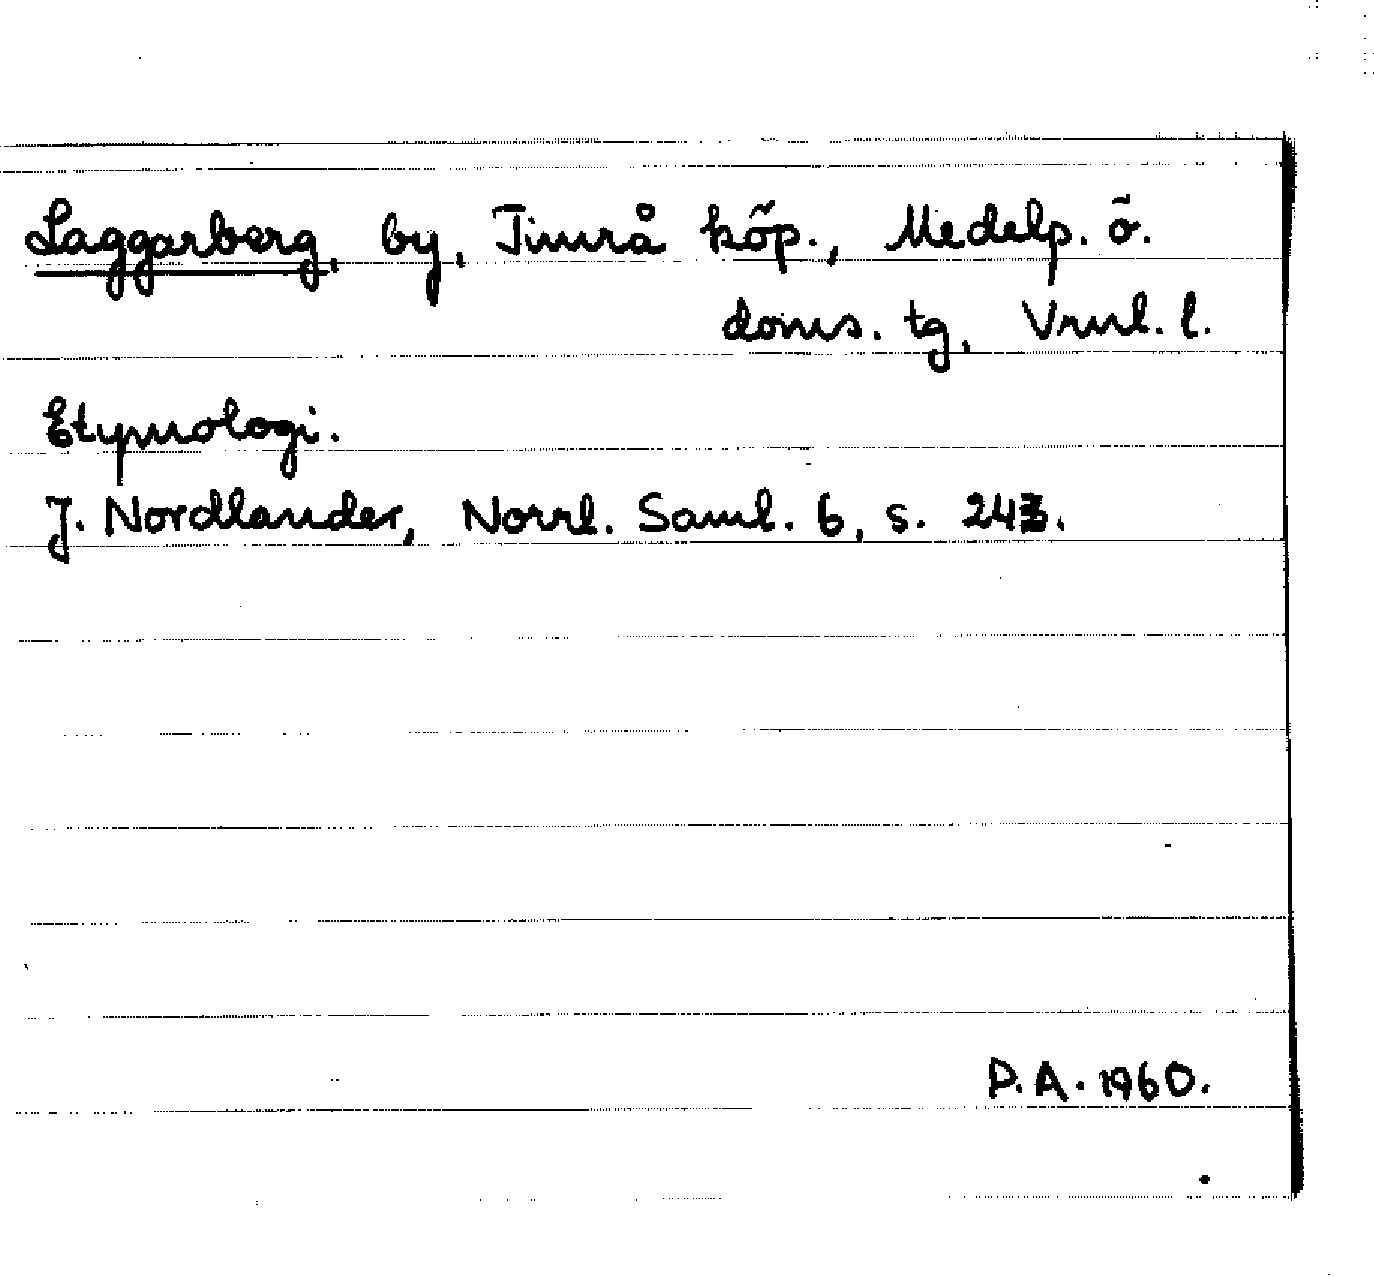 Laggarberg, by, Timrå köp., Medelp. ö.
doms. tg, Vrnl. l.
Etymologi.
J. Nordlander, Norrl. Saml. 6, s. 243.
P.A. 1960.